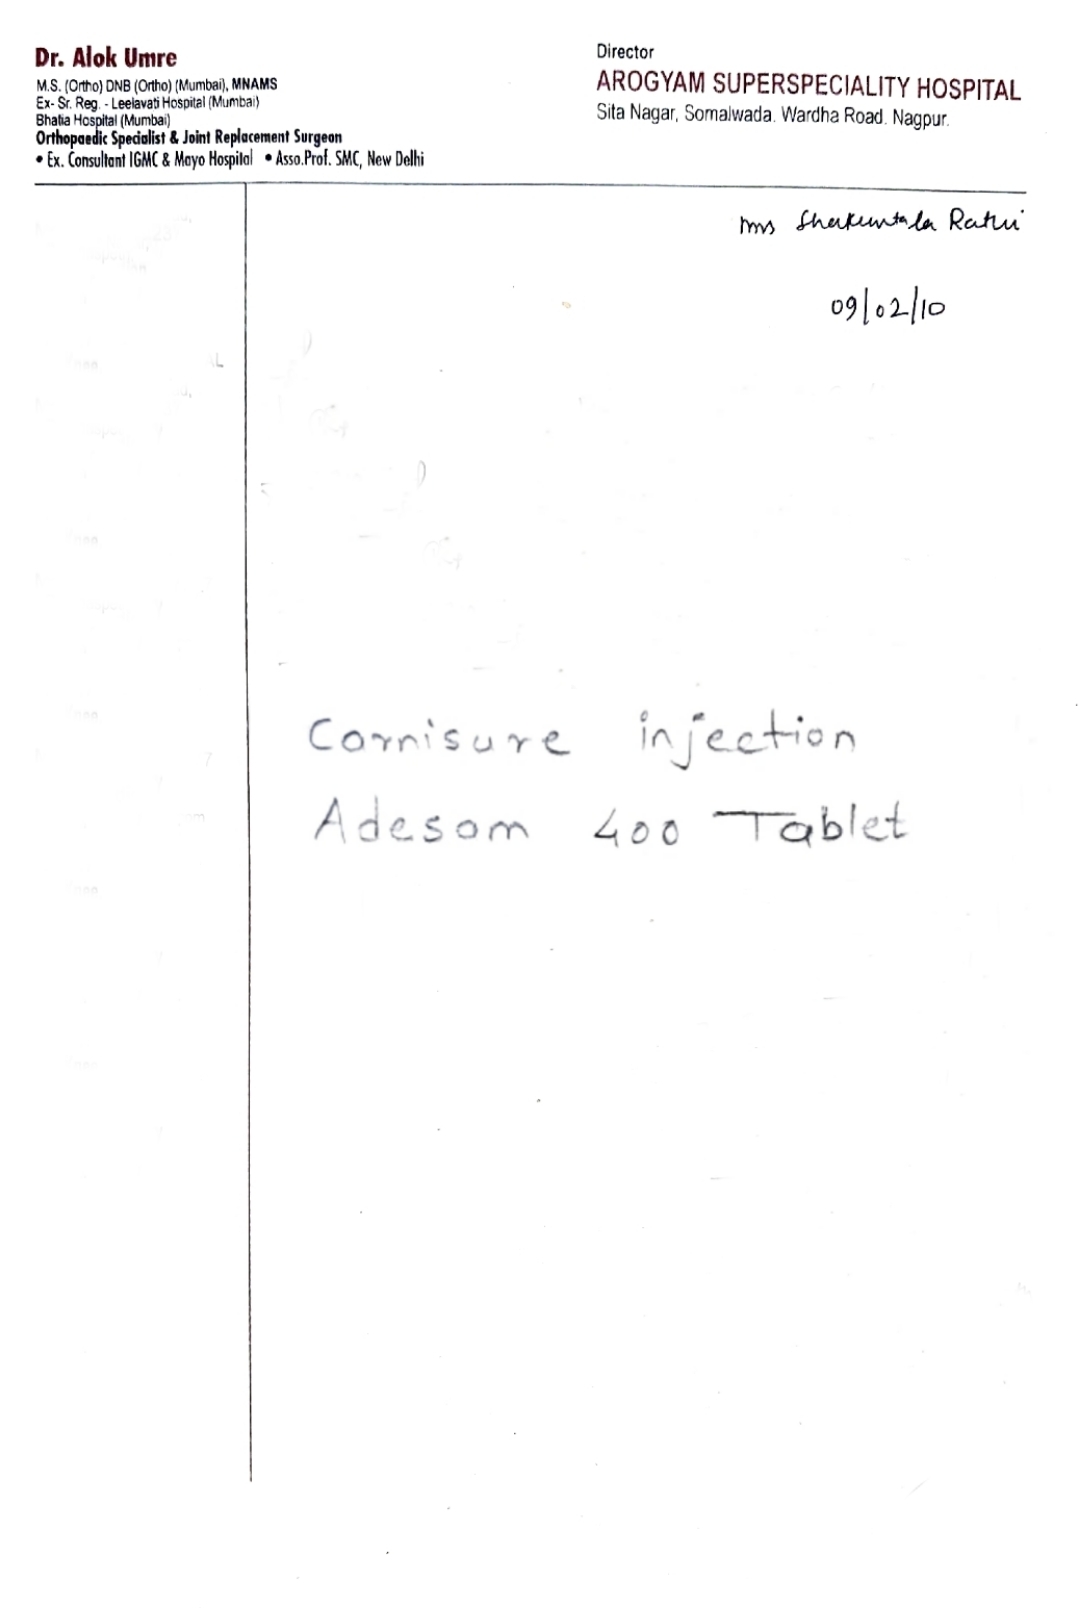 Dr. Alok Umre
M.S. (Ortho) DNB (Ortho) (Mumbai), MNAMS
Ex- Sr. Reg. - Leelavati Hospital (Mumbai)
Bhatia Hospital (Mumbai)
Orthopaedic Specialist & Joint Replacement Surgeon
• Ex. Consultant IGMC & Mayo Hospital • Asso.Prof. SMC, New Delhi
Director
AROGYAM SUPERSPECIALITY HOSPITAL
Sita Nagar, Somalwada. Wardha Road. Nagpur.
Mrs Shakuntala Rathi
09/02/10
Cornisure injection
Adesam 400 Tablet